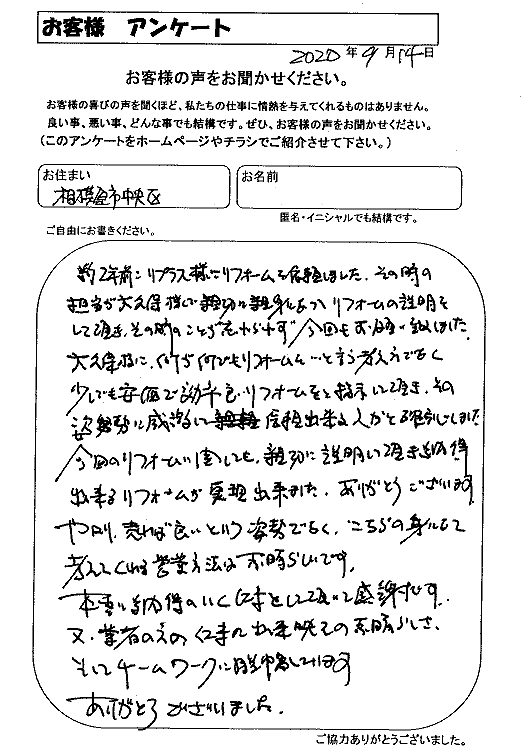 お客様 アンケート
2020年9月14日
お客様の声をお聞かせください。
お客様の喜びの声を聞くほど、私たちの仕事に情熱を与えてくれるものはありません。
良い事、悪い事、どんな事でも結構です。ぜひ、お客様の声をお聞かせください。
（このアンケートをホームページやチラシでご紹介させて下さい。）
お住まい
相模原市中央区
お名前
匿名・イニシャルでも結構です。
ご自由にお書きください。
約2年前にリプラス様にリフォームを依頼しました。その時の
担当が大久保様で親切に親身になってリフォームの説明を
して頂き、その時のことが忘れられず今回もお願い致しました
大久保様は、何が何でもリフォームを…と言う考えでなく
少しでも安価で効率良いリフォームをと指示して頂き、その
姿勢に感激して信頼出来る人がと確信しました
今回のリフォームに関しても、親切に説明して頂き納得
出来るリフォームが実現出来ました。ありがとうございます
やはり、売れば良いという姿勢でなく、こちらの身になって
考えてくれる営業方法は素晴らしいです。
本当に納得のいく仕事をして頂いて感謝です。
又、業者の方の仕事の出来映えの素晴らしさ、
そしてチームワークに脱帽しています
ありがとうございました。
ご協力ありがとうございました。